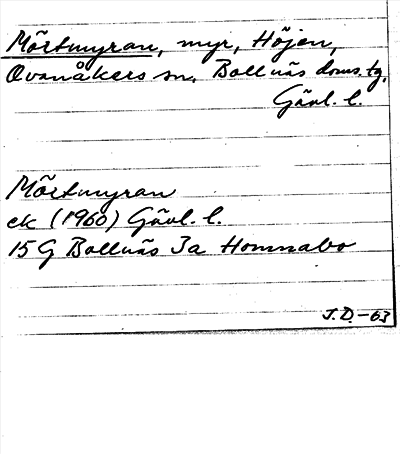 Mörtmyran, myr, Höjen,
Ovanåkers sn, Bollnäs doms. tg,
Gävl. l.
Mörtmyran
ek (1960) Gävl. l.
15 G Bollnäs 3a Homnabo
J.D.-63